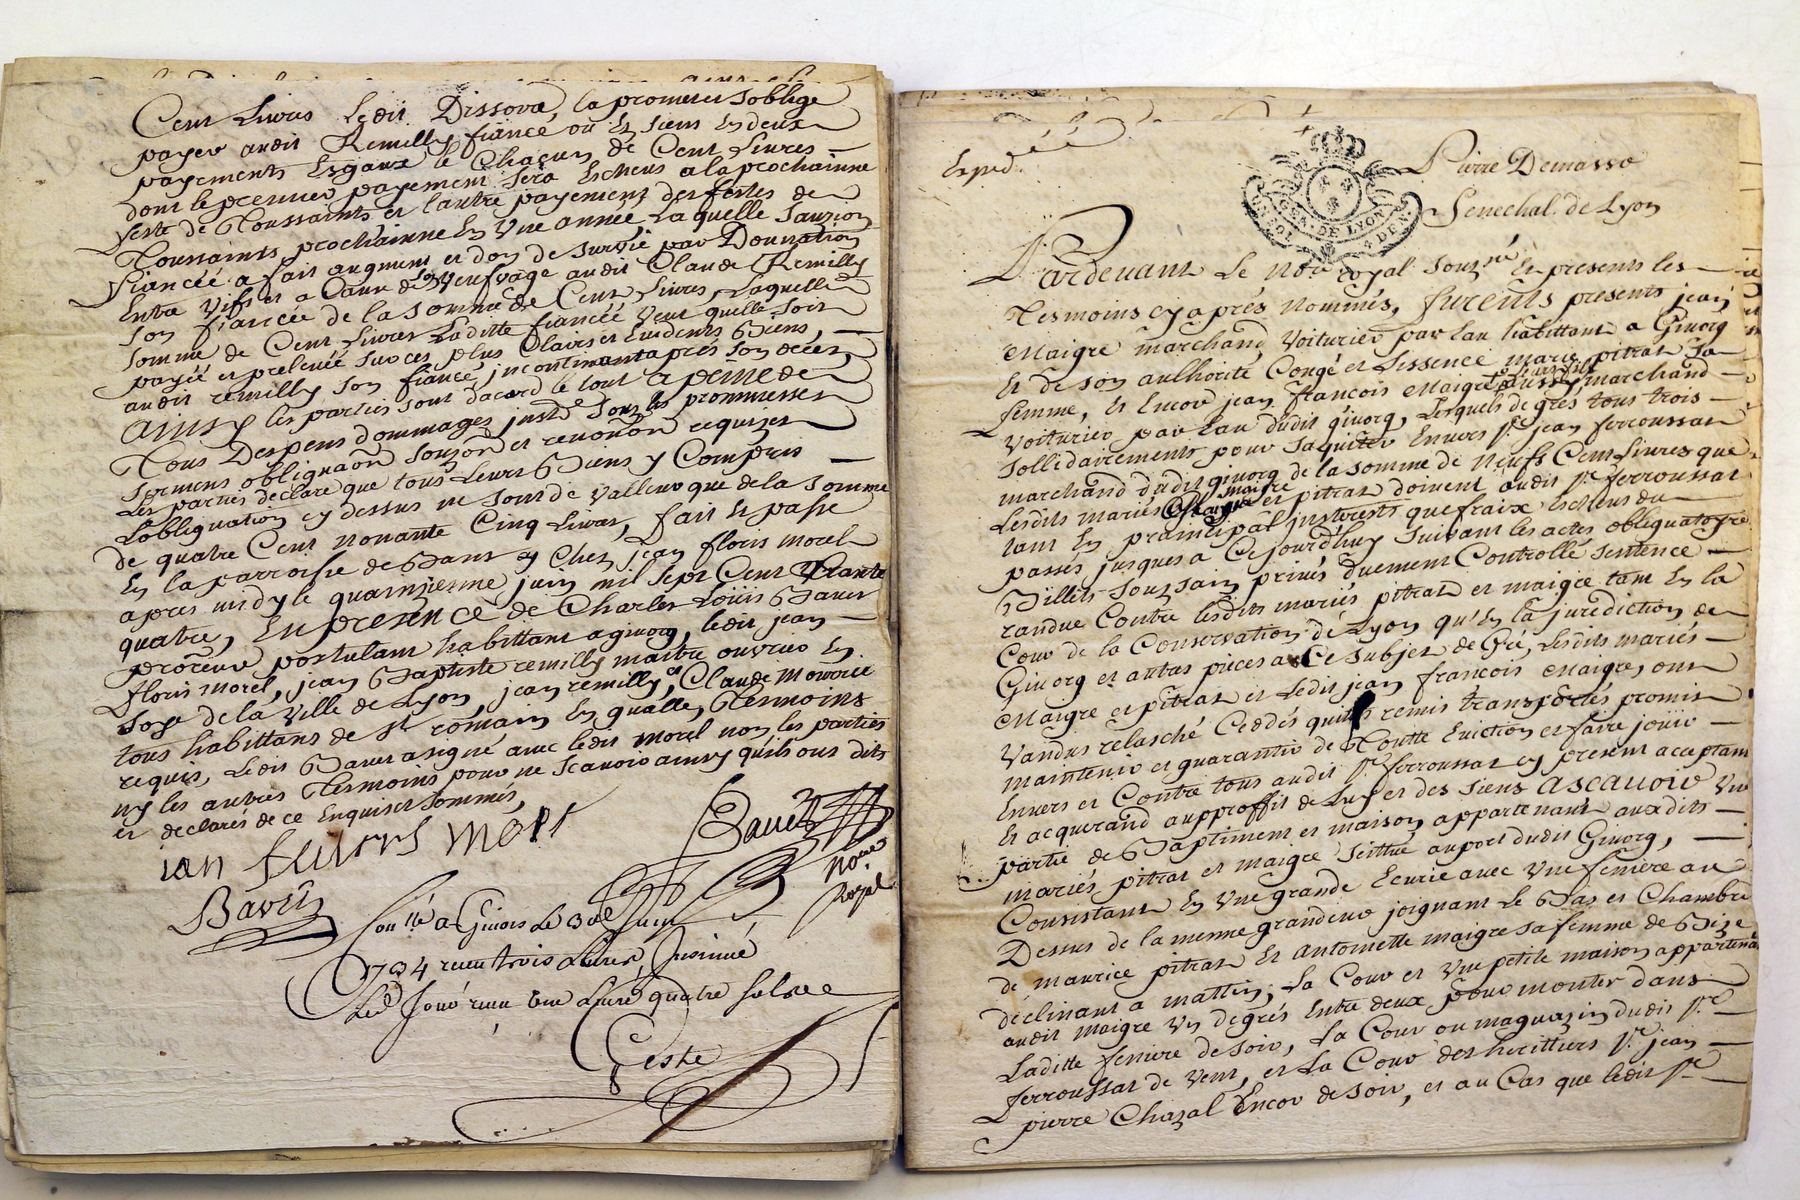 Cent Livres Ledit Dissora la promet et soblige
payer audit Remilly fiancé ou Es siens En deux
payements Esgaux le Chacun de Cent Livres
dont le premier payement sera Escheus a la prochainne
feste de Toussaints et lautre payement des festes de
Toussaints prochainne En Une année Laquelle
fiancée a fait augment et don de survie par Donnation
Entre Vifs et a Cause de Veufvage audit Claude Remilly
son fiancée de la somme de Cent Livres, Laquelle
somme de Cent Livres Laditte fiancée Veut quelle soit
payée et prelevée sur ces plus Clairs et Evidents Biens,
audit remilly son fiancé, jncontinant aprés son decés,
ainsy les parties sont dacord le tout a peine de
Tous Despens dommages
sermens obligaon et renonon requizes
Les parties declare que tous Leurs Biens y Compris
Lobliguation cy dessus ne sont de Valleur que de la somme
de quatre Cent nonante Cinq Livres, fait et passé
En la parroisse de Bans Chez jean floris morel
apres midy le quainzienne juin mil sept Cent Trante
quatre, En presence de Charles Loüis Baver
procreur postulant habittant a givorg, ledit jean
floris morel, jean Baptiste remilly maitre ouvrier En
soye de la Ville de Lyon, jean remilly, et Claude
tous habittans de st romain En Tesmoins
requis, Ledit Baver a signé avec ledit morel non les parties
ny les autres Tesmoins pour ne scavoir ainsy quils ont dits
et declarés de ce Enquis et sommés,
ian
Baver
No.re
Royal
a Givors Le
1734 receu trois Livres
receu une Livre quatre sols
Geste
Exped.
GEN. DE LYON
Pierre Demasso
Senechal de Lyon
Pardevant Le Nore royal souzné Et presents les
Tesmoins cy aprés nommés, furents presents jean
Maigre marchand Voiturier par Eau habittant a Givorg
Et de son authorité Congé et Lissence marie pitrat sa
femme, Et Encor jean françois Maigre leur fils aussy marchand
Voiturier par Eau dudit givorg, Lesquels de grés tous trois
sollidairements pour saquiter Envers sr. jean ferroussat
marchand dudit givorg de la somme de Neufs Cent Livres que
Lesdits mariés Maigre et pitrat doivent audit sr ferroussat
tant En prainsipal jnterests que fraix Escheus du
passés jusques a Cejourdhuy suivant les actes obliguatoyre
Billets souz sain privés duement Controllé sentence
randue Contre lesdits mariés pitrat et maigre tant En la
Cour de la Conservation de Lyon qu'En la jurediction de
Givorg et autres pieces a Ce subjet de Gré, Lesdits mariés
Maigre et pitrat et Ledit jean françois Maigre, ont
Vandus relasché Ceddés quittés remis transportés promis
maintenir et guarantir de Toutte Eviction et faire jouir
Envers et Contre tous audit sr ferroussat cy present acceptant
Et acquerand au proffit de Luy et des siens ascavoir Une
partie de Baptiment et maison appartenant auxdits
mariés pitrat et maigre scittué au port dudit Givorg,
Consistant En Une grande Ecurie avec Une feniere au
Dessus de la mesme grandeur joignant Le Bas et Chambre
de maurice pitrat Et antoinette maigre sa femme de Bize
declinant a mattin, La Cour et Une petite maison appartenant
audit maigre Un degrés Entre deux pour monter dans
Laditte feniere de soir, La Cour ou maguazin dudit sr
ferroussat de Vent, et La Cour des herittiers sr jean
pierre Chazal Encor de soir, et au Cas que ledit sr